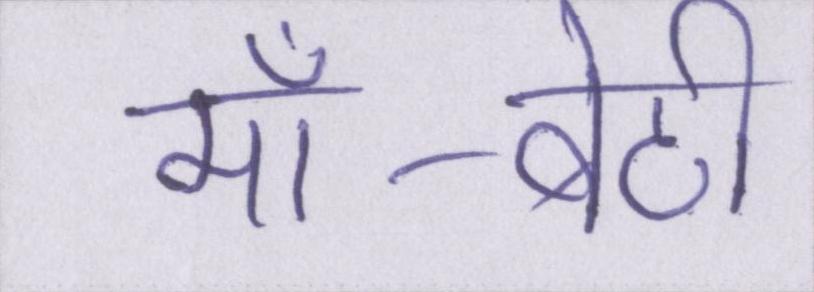 माँ-बेटी